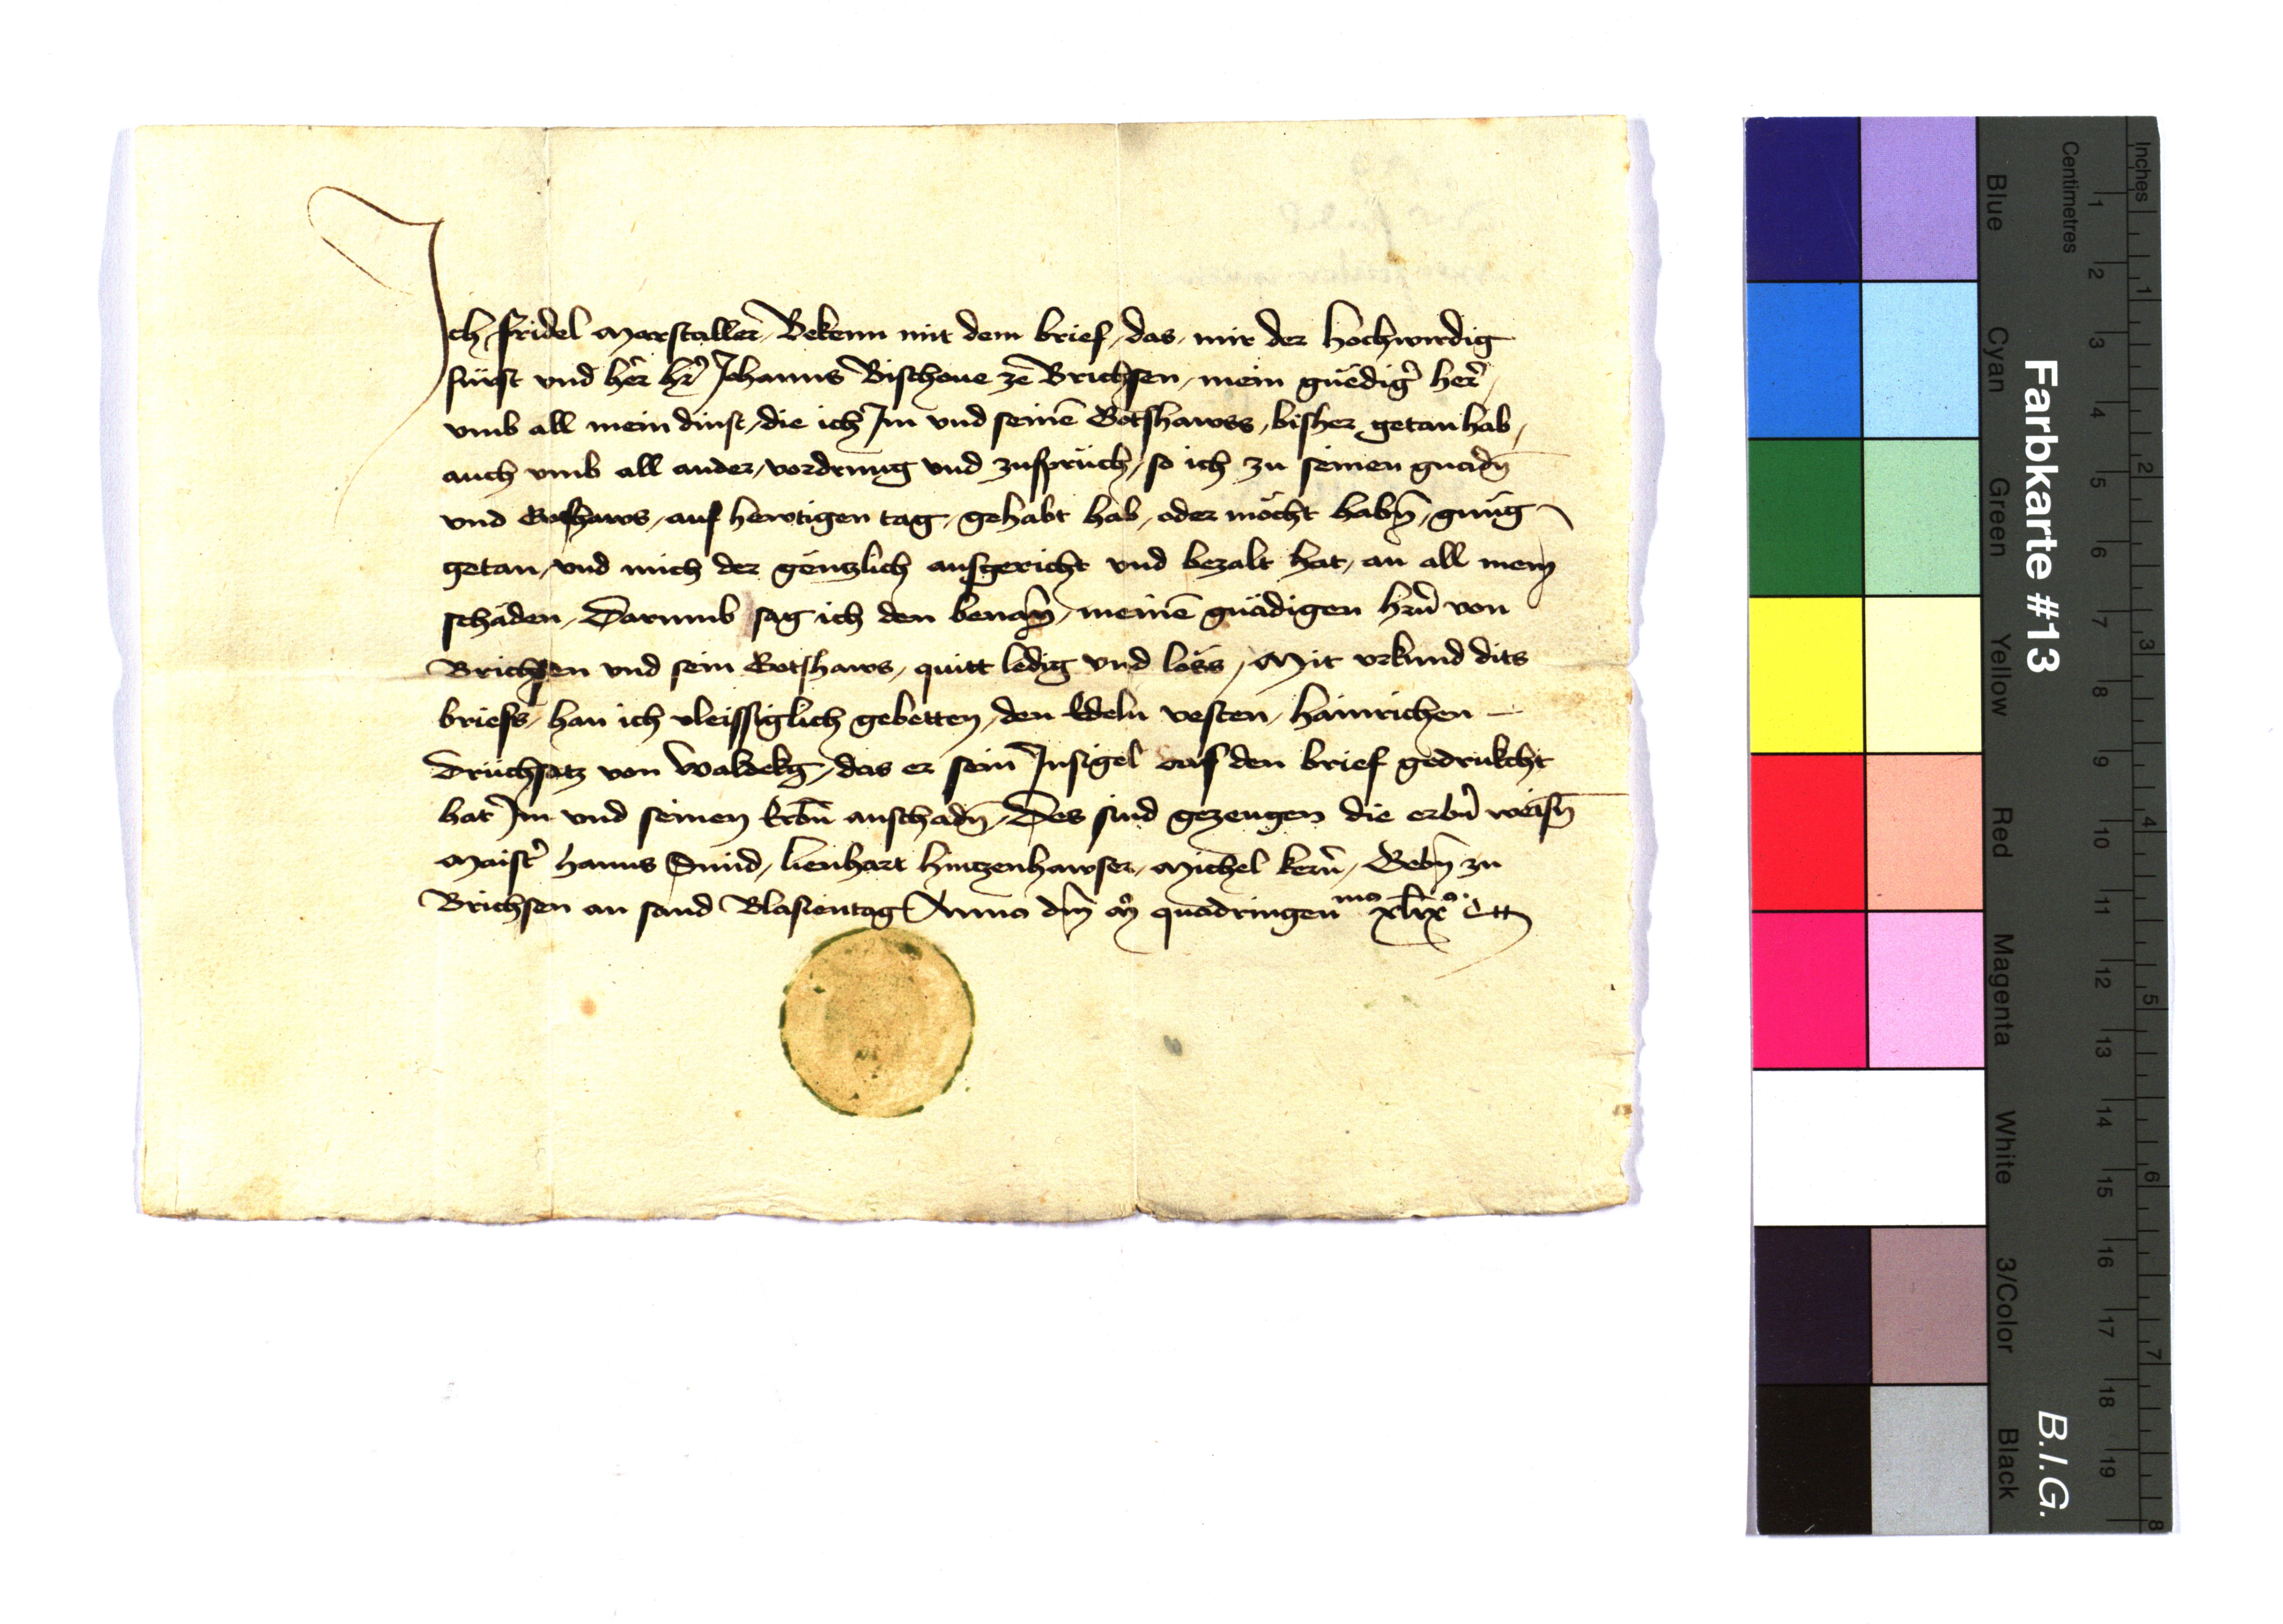 Ich fridel Marstaller Bekenn mit dem brief, das mir der hochwirdig
fürst vnd her hr̄ Johanns Bischoue ze Brichsen, mein guedig̉ her̉
vmb all mein dinst, die ich Im vnd seinē Gotshawss, bisher getan hab,
auch vmb all ander, vordrung vnd zuspruch, so ich zu seinen gnadn̄
vnd Gotshaws, auf hewtigen tag, gehabt hab, oder möcht habn̄, gnüg
getan, vnd mich der gentzlich ausgericht vnd bezalt hat, an all mein
schäden, Darumb sag ich den benan̄, meinē gnädigen hrn̄ von
Brichsen vnd sein Gotshaws, quitt ledig vnd löss, Mit vrkund dits
briefs, han ich vleissiglich gebetten, den Edeln vesten, hainrichen
Drüchsatz von Waldekg, das er sein Insigel auf den brief gedrukcht
hat Im vnd seinen Erbn̄ anschadn̄, Des sind gezeugen die erbn̄ weisn̄
Maist̉ hanns Smid, lienhart hintzenhawser, Michel kern̄, Gebn̄ zu
Brichsen an sand Blasientag Anno dm̄ mo quadringenmo xlixo Ett
Farbkarte #13
B.I.G.
Inches
1 2 3 4 5 6 7 8
Centimetres
1 2 3 4 5 6 7 8 9 10 11 12 13 14 15 16 17 18 19
Blue
Cyan
Green
Yellow
Red
Magenta
White
3/Color
Black